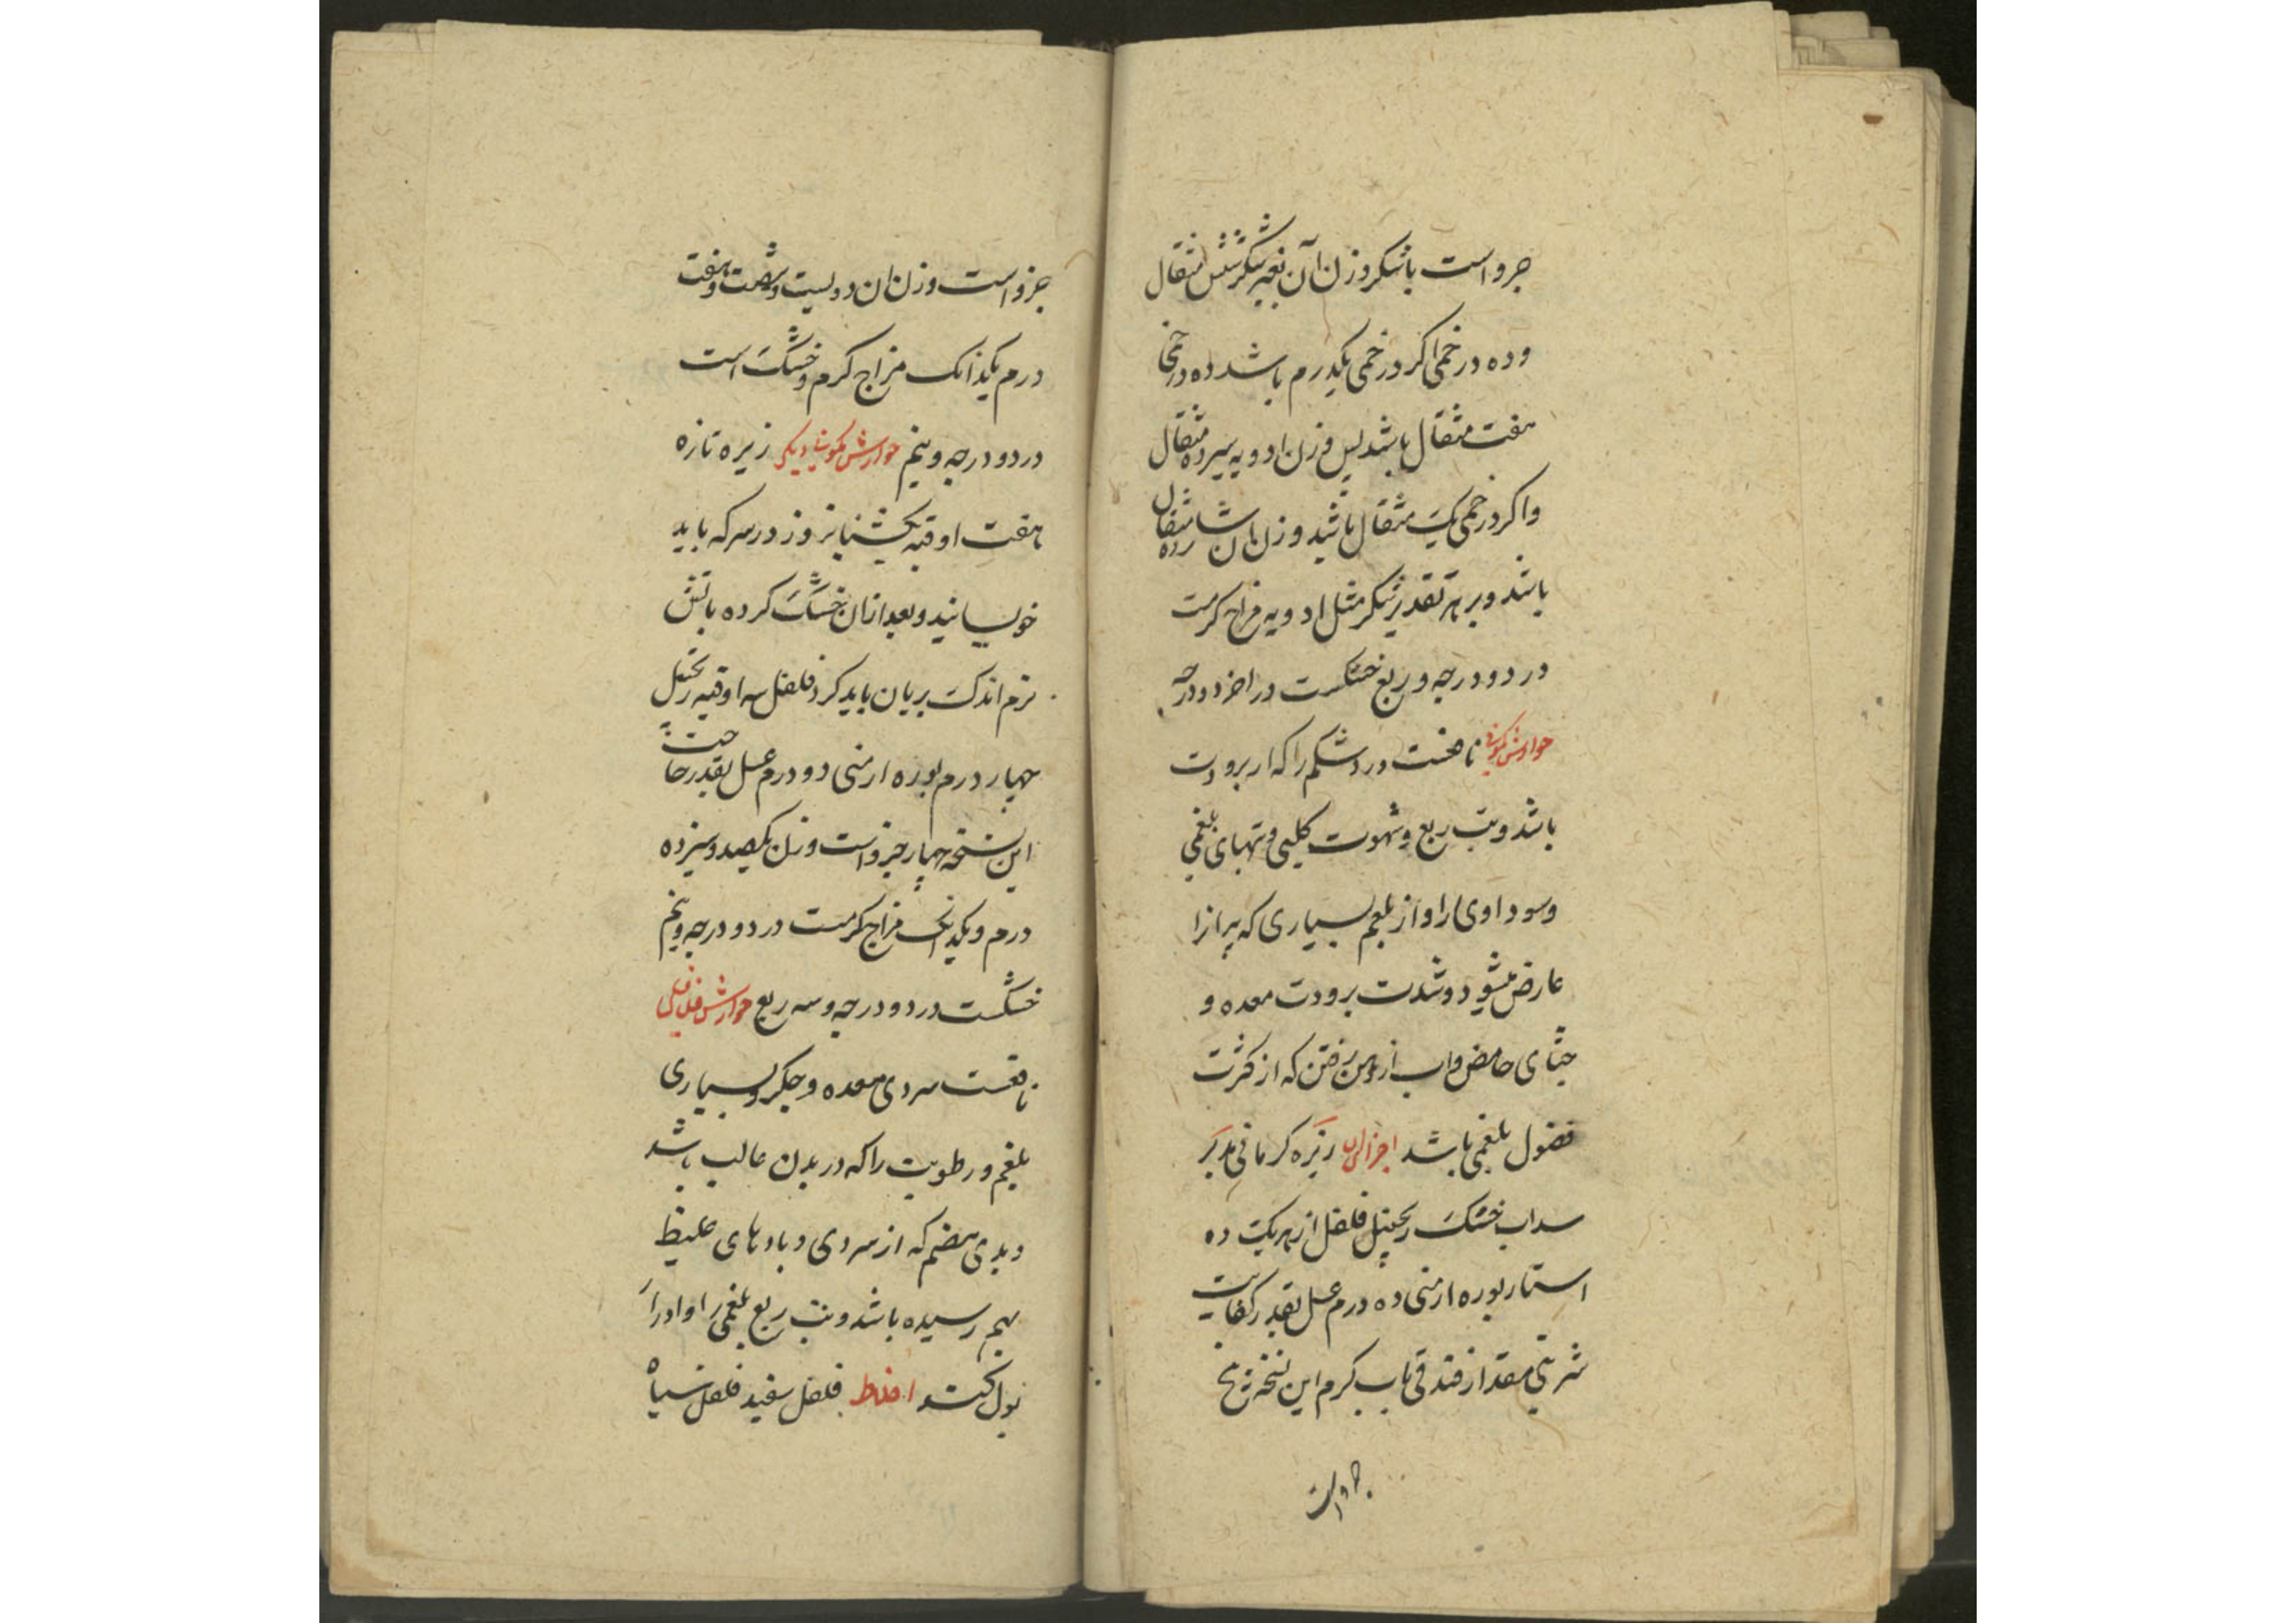 جزو است باشکر وزن آن بغیر شکر شش مثقال
وده درخمی اکر درخمی یکدرم باشد ده درخمی
هفت مثقال باشد پس وزن ادویه سیزده مثقال
واکر درخمی یک مثقال باشد وزن ان شانزده مثقال
باشد وبر هر تقدیر شکر مثل ادویه مزاج کرمست
در دو درجه وربع خشکست در اخر دو درجه
جوارش کمونی نافعست درد شکم را که از برودت
باشد وتب ربع وشهوت کلبی وتبهای بلغمی
وسوداوی را واز بلغم بسیاری که پیرانرا
عارض میشود وشدت برودت معده و
جشای حامض واب از دهن رفتن که از کثرت
فضول بلغمی باشد اجزای ان زیره کرمانی مدبر
سداب خشک زنجبیل فلفل از هریک ده
استار بوره ارمنی ده درم عسل بقدر کفایت
شربتی مقدار فندقی باب کرم این نسخه پنج
جزو است
جزو است وزن ان دویست وشصت وهفت
درم یکدانک مزاج کرم وخشک است
در دو درجه ونیم جوارش کمونی دیکر زیره تازه
هفت اوقیه یکشبانروز در سرکه باید
خویسانید وبعد ازان خشک کرده باتش
نرم اندک بریان باید کرد فلفل سه اوقیه زنجبیل
چهار درم بوره ارمنی دو درم عسل بقدر حاجت
این نسخه چهار جزو است وزن یکصد وسیزده
درم ویکدانک مزاج کرمست در دو درجه ونیم
خشکست در دو درجه وسه ربع جوارش فلافلی
نافعست سردی معده وجکر وبسیاری
بلغم ورطوبت را که در بدن غالب باشد
وبدی هضم که از سردی وبادهای غلیظ
بهم رسیده باشد وتب ربع بلغمی را وادرار
بول کند اخلاط فلفل سفید فلفل سیاه